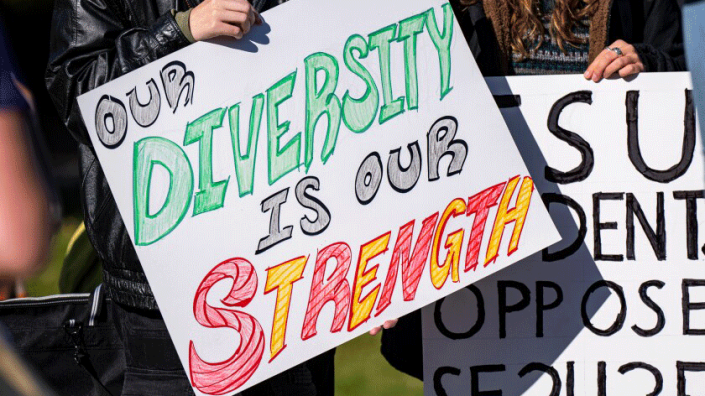 OUR
DIVERSITY
IS OUR
STRENGTH
SU
DENT
OPPOSE